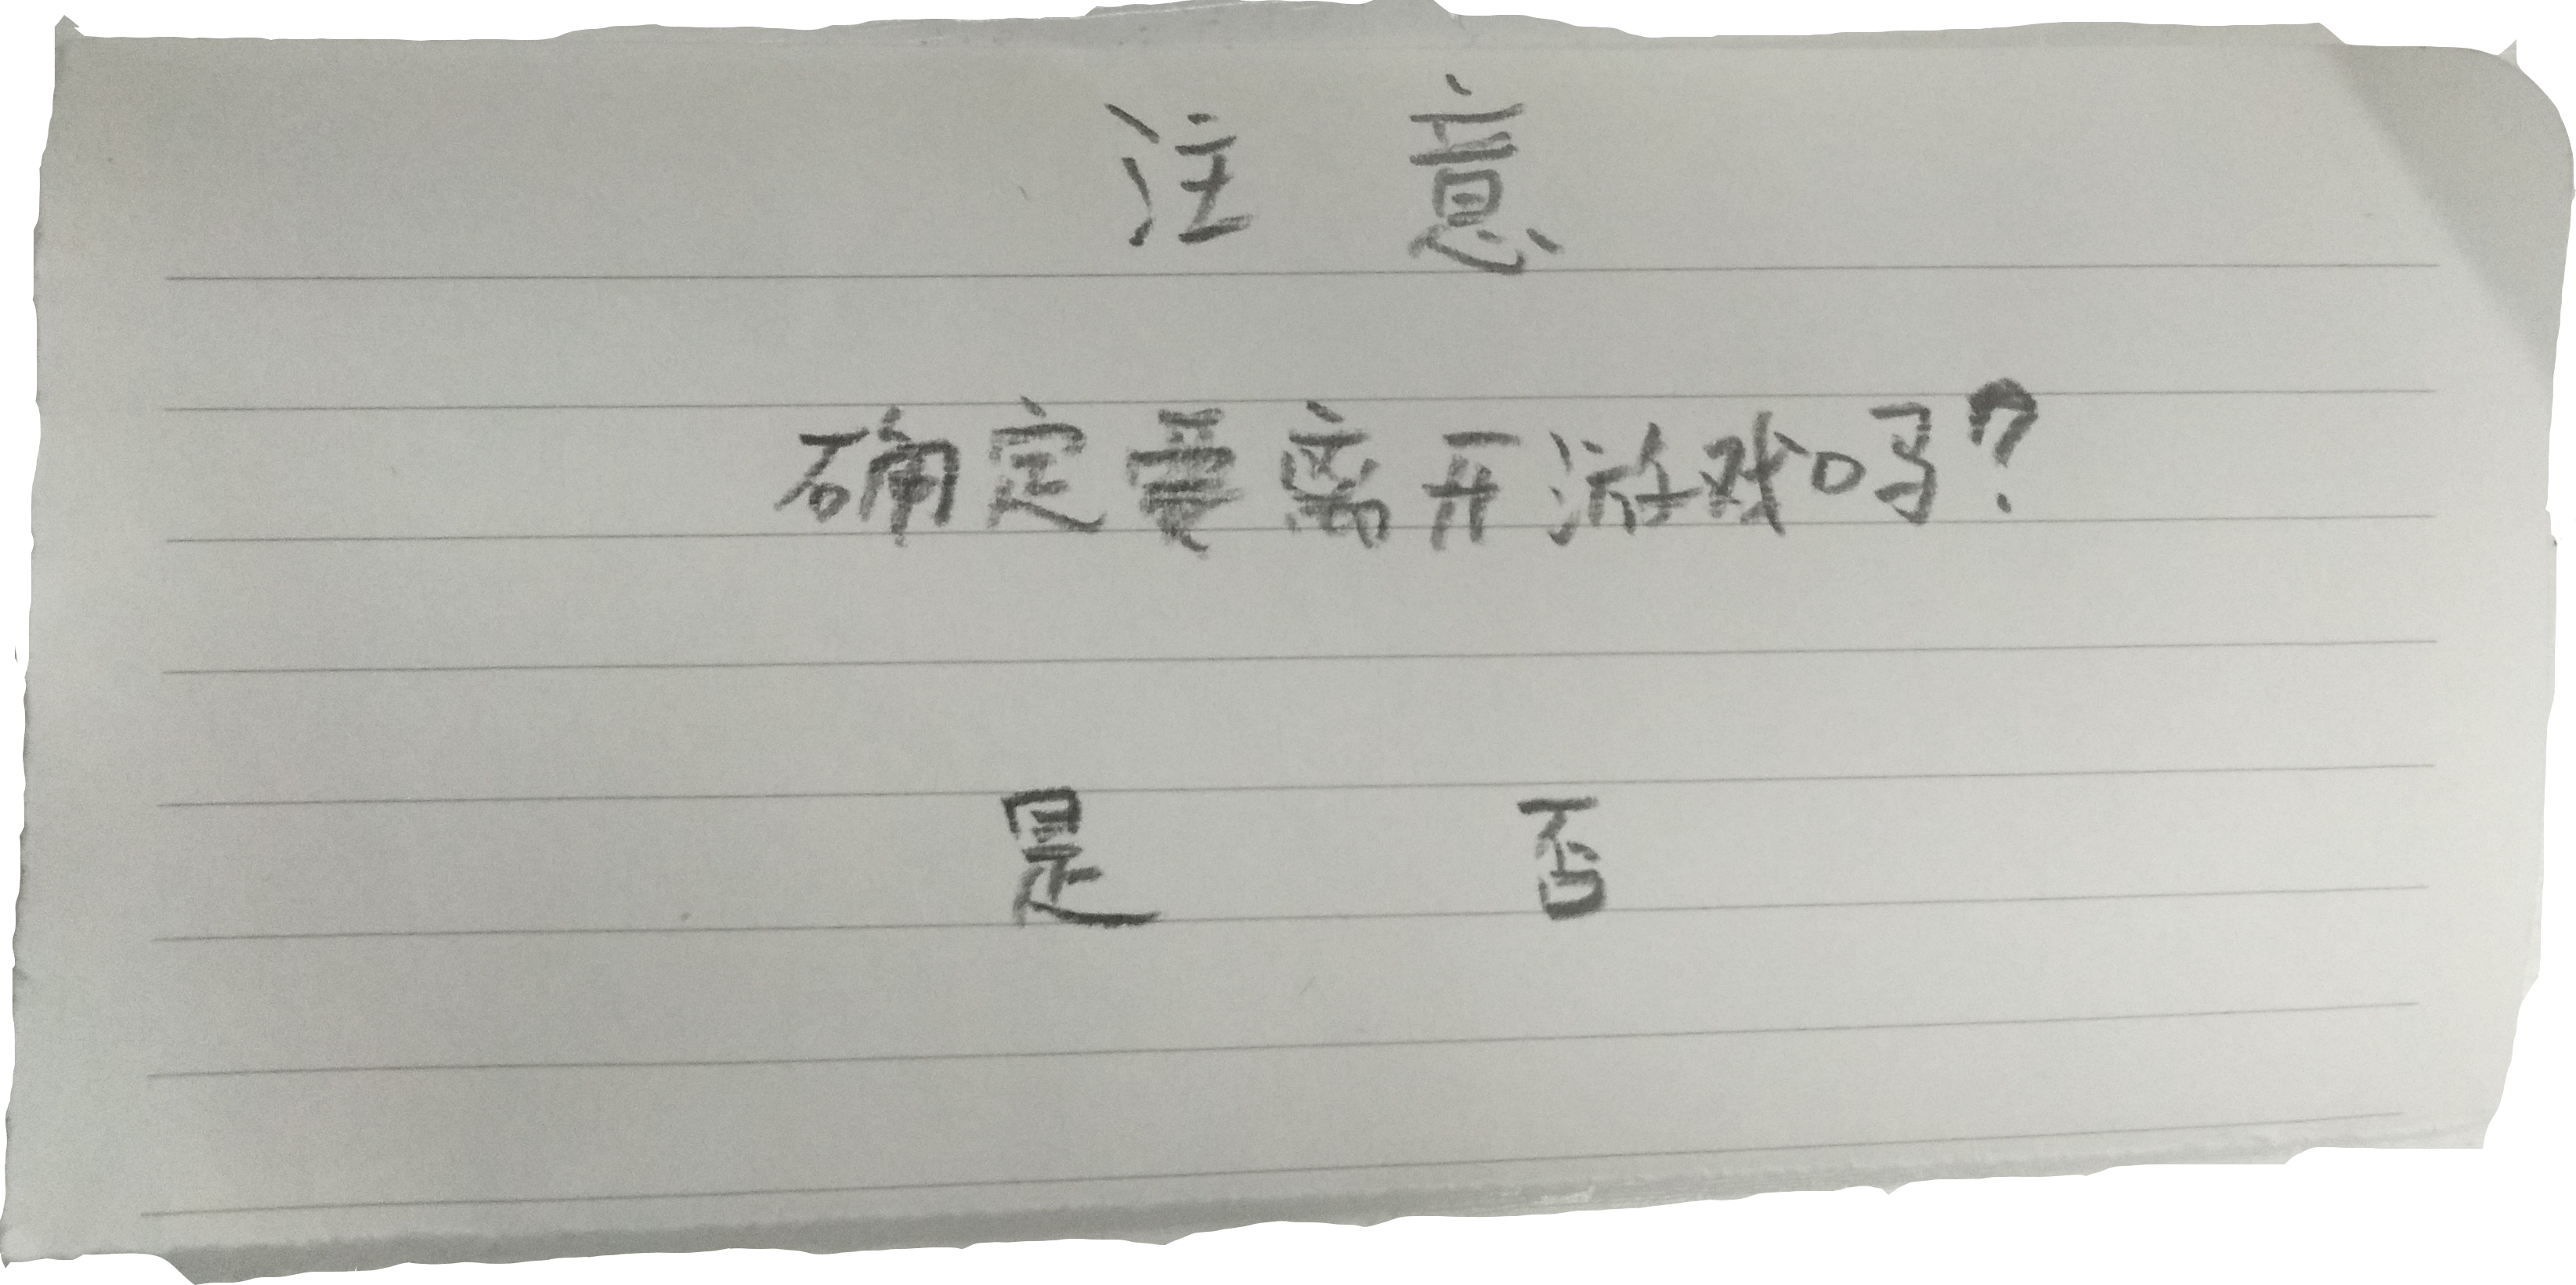 注意
确定要离开游戏吗?
是 否